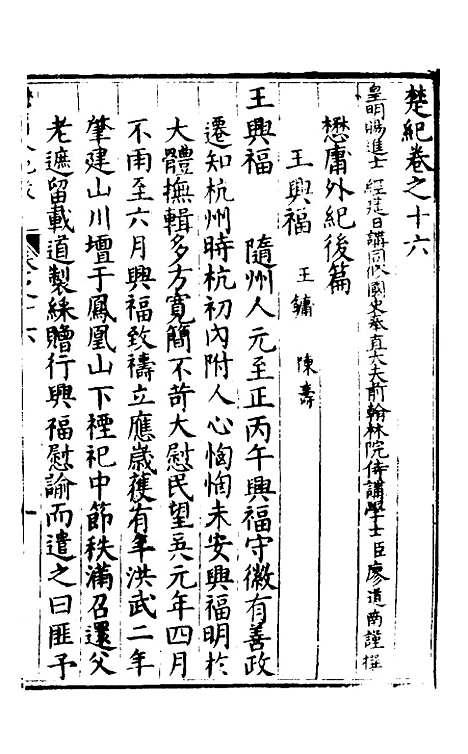 楚紀卷之十六
皇明賜進士經筵日講同修國史奉直大夫前翰林院侍講學士臣廖道南謹撰
懋庸外紀後篇
王興福 王鏞 陳壽
王興福 隨州人元至正丙午興福守徽有善政
遷知杭州時杭初內附人心恟恟未安興福明於
大體撫輯多方寬簡不苛大慰民望吳元年四月
不雨至六月興福致禱立應歲獲有年洪武二年
肇建山川壇于鳳凰山下禋祀中節秩滿召還父
老遮留載道製綵贈行興福慰諭而遣之曰匪予